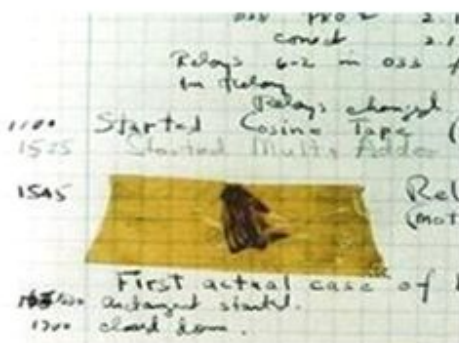 033 PRO 2 2.1
conect 2.1
Relays 6-2 in 033 f
in Relay
Relays changed
1100 Started Cosine Tape (
1525 Started Mult+ Adder
1545 Rel
(mot
First actual case of b
1630 antangent started.
1700 closed down.